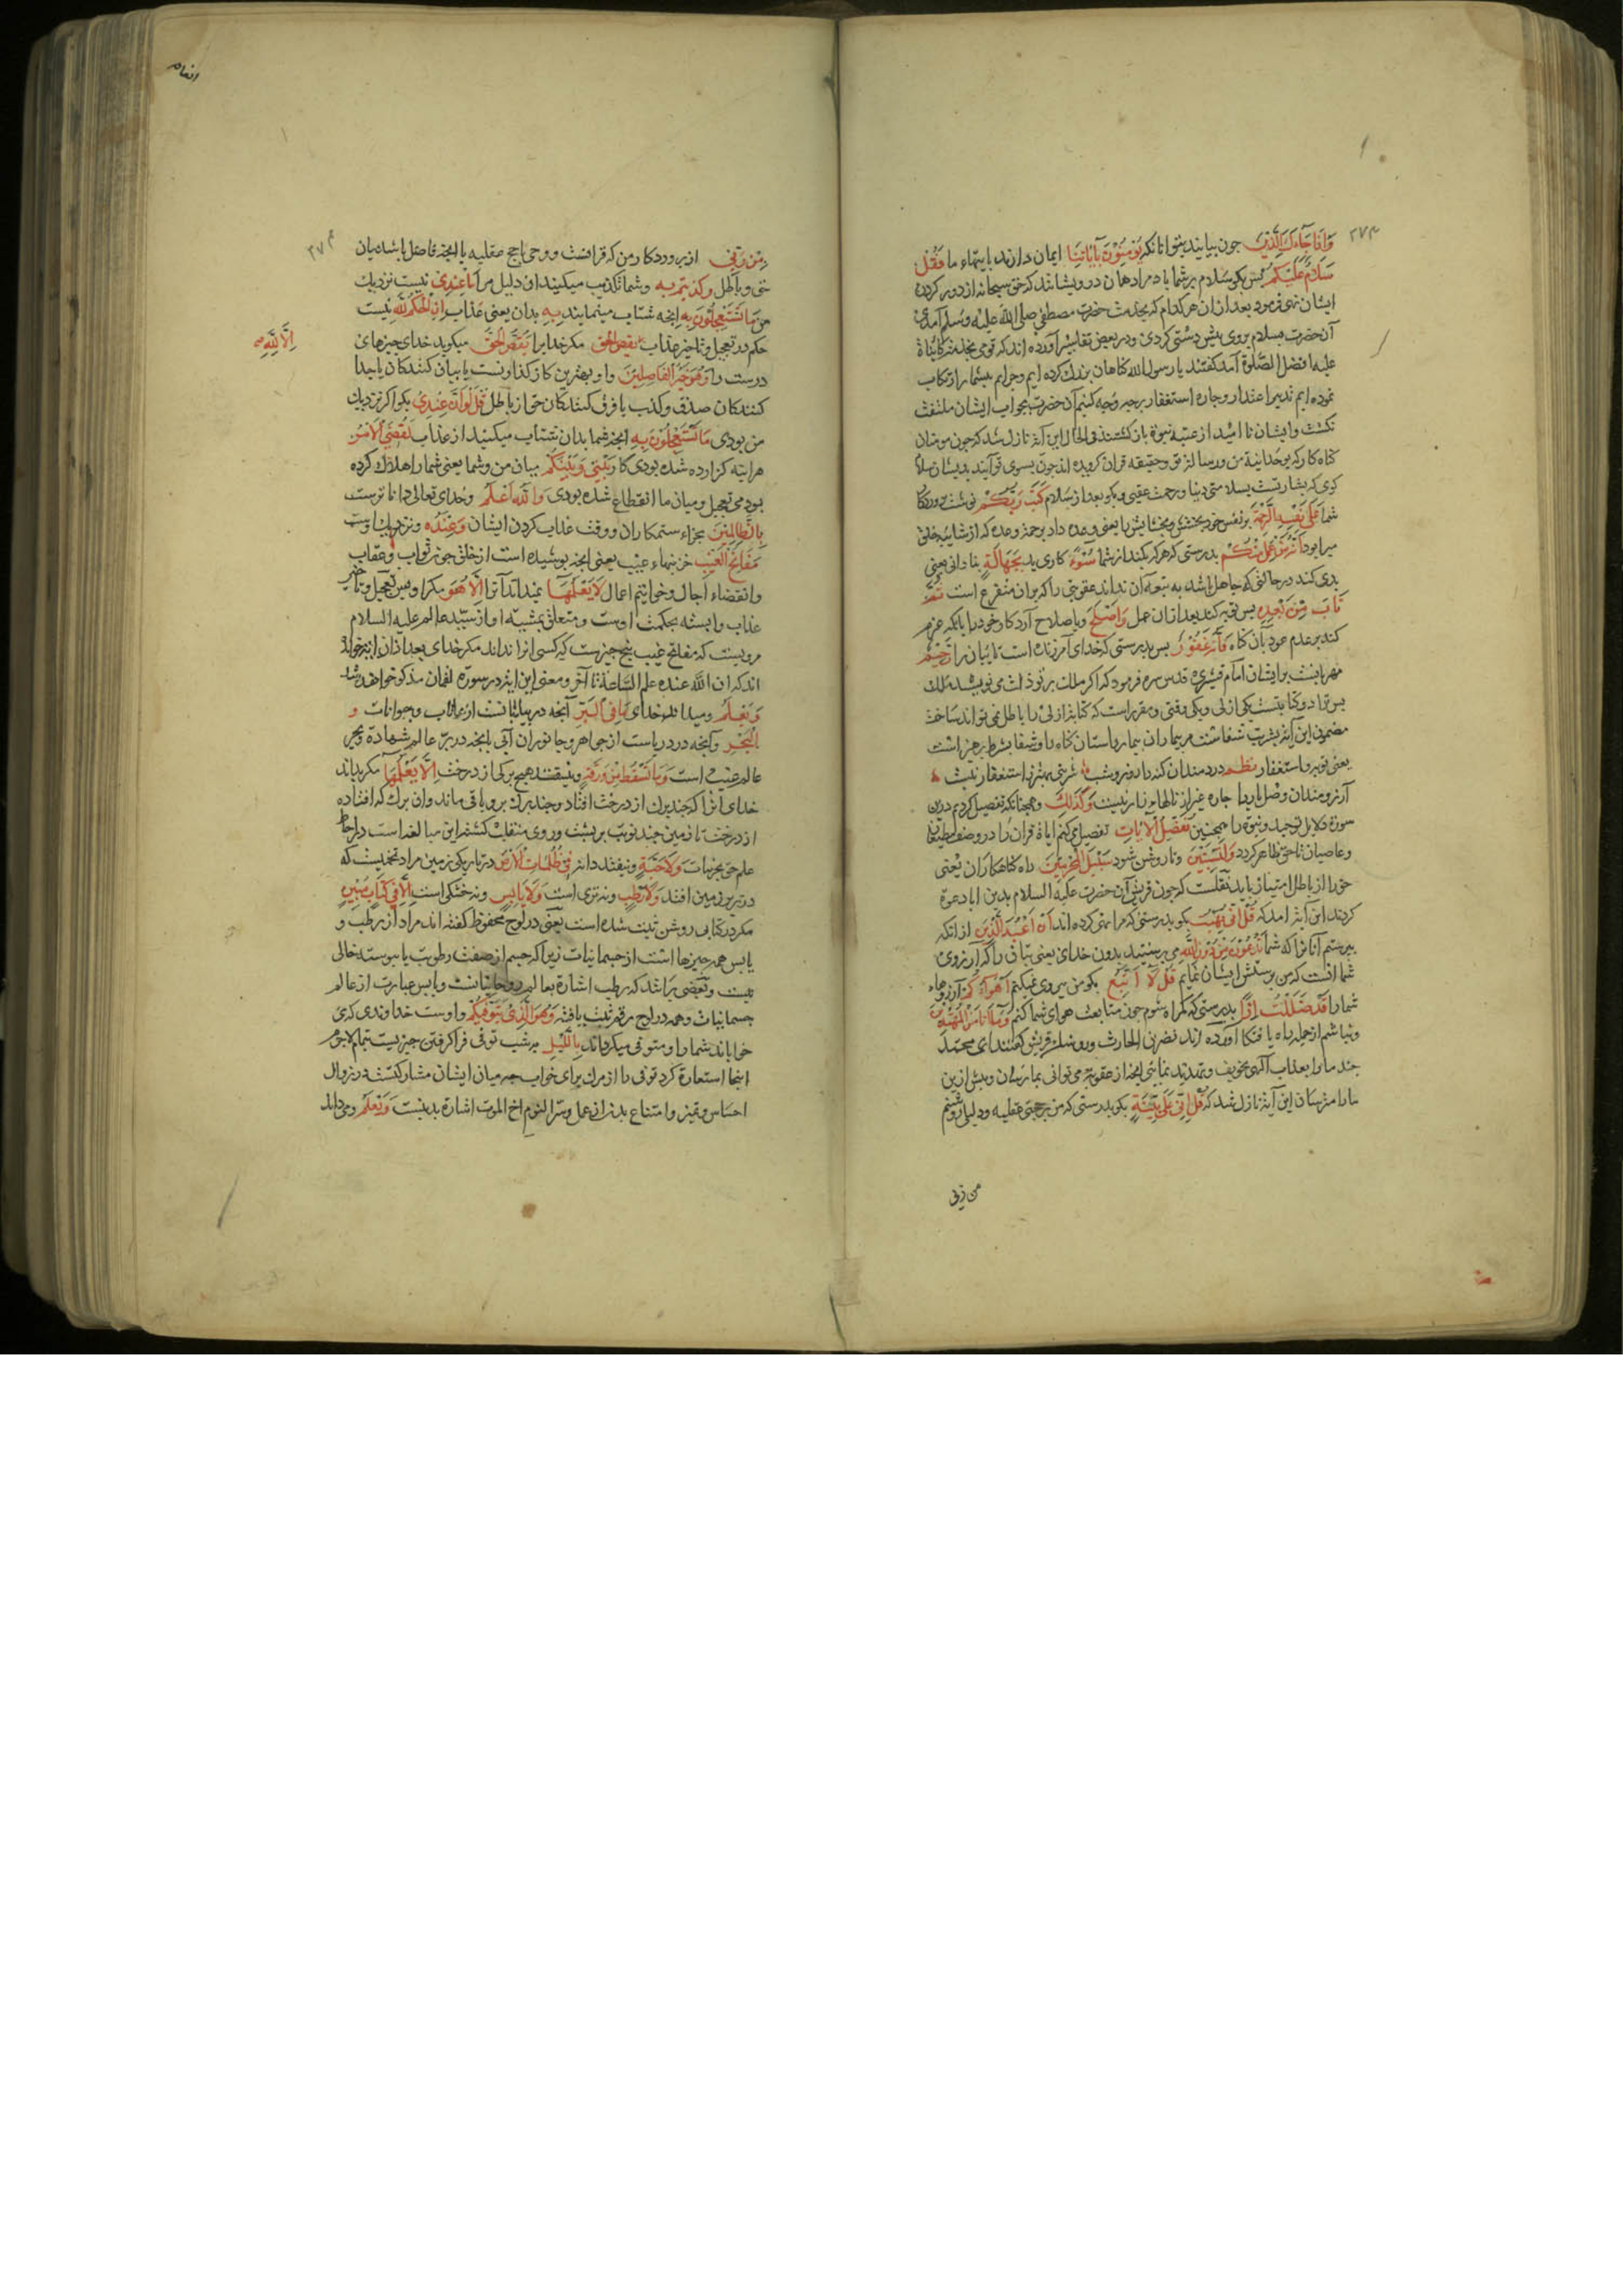 وَاِذَا جَآءَكَ الَّذِيْنَ جون بيايند بتو انانكه يُؤْمِنُوْنَ بِآيَاتِنَا ايمان دارند بايتهاء ما فَقُلْ
سَلَامٌ عَلَيْكُمْ پس بكو سلام بر شما باد مراد همان درويشانند كه حق سبحانه از دور كردن
ايشان نهى فرمود بعد از ان هر كدام كه بخدمت حضرت مصطفى صلى الله عليه وسلم آمدى
آن حضرت بسلام بروى پيش دستى كردى ودر بعض تفاسير آورده اند كه قومى
عليه افضل الصلوة آمد كفتند يا رسول الله كناهان بزرك كرده ايم وجرايم بيشمار ارتكاب
نموده ايم تدبير اعتذار وچاره استغفار بر چه وجه كنيم آن حضرت بجواب ايشان ملتفت
نكشت وايشان نا اميد از عتبه نبوة باز كشتند فى الحال اين آيه نازل شد كه چون مومنان
كناه كار كه بوحدانية من ورسالت تو وحقيقه قران كرويده اند چون بسوى تو آيند بديشان سلام
كوى كه بشارتست بسلامتى دنيا ورحمت عقبى وبكو بعد از سلام كَتَبَ رَبُّكُمْ نوشت پروردكار
شما عَلٰى نَفْسِهِ الرَّحْمَةَ بر نفس خود بخشش وبخشايش را يعنى وعده داد برحمة وعده كه از شايبه خلف
مبرا بود اَنَّهُ مَنْ عَمِلَ مِنْكُمْ بدرستى كه هر كه بكند از شما سُوْءً كارى بد بِجَهَالَةٍ بنادانى يعنى
بدى كند در حالتى كه جاهل باشد به آن نداند عقوبتى را كه بر ان متفرع است ثُمَّ
تَابَ مِنْ بَعْدِهِ پس توبه كند بعد از ان عمل وَاَصْلَحَ وباصلاح آرد كار خود را بانكه عزم
كند بر عدم عود بان كناه فَاَنَّهُ غَفُوْرٌ پس بدرستى كه خداى آمرزنده است تايبان را رَحِيْمٌ
مهربانست بر ايشان امام قشيرى قدس سره فرمود كه اكر ملك بر تو ذلت مى نويسد ملك
پس ترا دو كتابتست يكى ازلى ويكى وقتى ومقرر است كه كتابة ازلى را باطل نمى تواند ساخت
مضمون اين آيه شربت شفاست مر بيماران بيمارستان كناه را وشفا بشرط پرهيز است
يعنى توبه واستغفار نظم دردمندان كنه را روز وشب ؛ شربتى بهتر ز استغفار نيست ؛
آرزومندان وصل يار را چاره غير از نالهاء زار نيست وَكَذٰلِكَ وهمچنانكه تفصيل كرديم درين
سورة دلايل توحيد ونبوة را همچنين نُفَصِّلُ الْآيَاتِ تفصيل مى كنم اياة قران را در وصف مطيعان
وعاصيان تا حق ظاهر كردد وَلِتَسْتَبِيْنَ وتا روشن شود سَبِيْلُ الْمُجْرِمِيْنَ راه كناهكاران يعنى
حق را از باطل امتياز بايد نقلست كه چون قريش آن حضرت عليه السلام بدين ابا دعوة
كردند اين آيه امد كه قُلْ اِنِّىْ نُهِيْتُ بكو بدرستى كه مرا نهى كرده اند اَنْ اَعْبُدَ الَّذِيْنَ از انكه
بپرستم آنانرا كه شما تَدْعُوْنَ مِنْ دُوْنِ اللهِ مى پرستيد بدون خداى يعنى بتان را كه آرزوى
شما انست كه من پرستش ايشان نمايم قُلْ لَا اَتَّبِعُ بكو من پيروى نميكنم اَهْوَاءَكُمْ آرزوهاء
شما را قَدْ ضَلَلْتُ اِذًا بدرستى كه كمراه شوم چون متابعت هواى شما كنم وَمَا اَنَا مِنَ الْمُهْتَدِيْنَ
ونباشم از جمله راه يافتكان آورده اند نضر بن الحارث وروساء قريش كفتند اى محمد
چند ما را بعذاب آلهى تخويف وتهديد نمايى انچه از عقوبة مى توانى بما رسان وبيش ازين
ما را مترسان اين آيه نازل شد كه قُلْ اِنِّىْ عَلٰى بَيِّنَةٍ بكو بدرستى كه من بر حجتى عقليه ودليلى روشنم
من ربى
انعام
مِنْ رَبِّىْ از پروردكار من كه قرانست ووحى يا حجج عقليه يا انچه فاصل باشد ميان
حق وباطل وَكَذَّبْتُمْ بِهِ وشما تكذيب ميكنيد ان دليل مرا مَا عِنْدِىْ نيست نزديك
من مَا تَسْتَعْجِلُوْنَ بِهِ انچه شتاب مينمايند بِهِ بدان يعنى عذاب اِنِ الْحُكْمُ لِلّٰهِ نيست
حكم در تعجيل وتاخير عذاب مكر خدايرا يَقُصُّ الْحَقَّ ميكويد خداى چيزهاى
اِلَّا لِلّٰهِ
درست را وَهُوَ خَيْرُ الْفَاصِلِيْنَ واو بهترين كاركذارونست يا بيان كنندكان يا جدا
كنندكان صدق وكذب يا فرق كنندكان حق از باطل قُلْ لَوْ اَنَّ عِنْدِىْ بكو اكر نزديك
من بودى مَا تَسْتَعْجِلُوْنَ بِهِ انچه شما بدان شتاب ميكنيد از عذاب لَقُضِىَ الْاَمْرُ
هراينه كزارده شده بودى كار بَيْنِىْ وَبَيْنَكُمْ ميان من وشما يعنى شما را هلاك كرده
بودمى بتعجيل وميان ما انقطاع شده بودى وَاللهُ اَعْلَمُ وخداى تعالى داناترست
بِالظَّالِمِيْنَ بجزاء ستمكاران ووقت عذاب كردن ايشان وَعِنْدَهُ ونزديك اوست
مَفَاتِحُ الْغَيْبِ خزينهاء غيب يعنى انچه پوشيده است از خلق چون ثواب وعقاب
وانقضاء اجال وخواتيم اعمال لَا يَعْلَمُهَا نميداند آنرا اِلَّا هُوَ مكر او پس تعجيل وتاخير
عذاب وابسته بحكمت اوست ومتعلق بمشيه او از سيد عالم عليه السلام
مرويست كه مفاتح غيب پنج چيزست كه كسى انرا نداند مكر خداى بعد از ان اين ايه خواند
اند كه ان الله عنده علم الساعة تا آخر ومعنى اين ايه در سورة لقمان مذكور خواهد شد
وَيَعْلَمُ وميداند خداى مَا فِى الْبَرِّ آنچه در بيابانست از نباتات وحيوانات وَ
الْبَحْرِ وآنچه در درياست از جواهر وجانوران آبى يا انچه در بر عالم شهادة وبحر
عالم غيب است وَمَا تَسْقُطُ مِنْ وَرَقَةٍ ونيفتد هيچ بركى از درخت اِلَّا يَعْلَمُهَا مكر بداند
خداى انرا كه چند برك از درخت افتاد وچند برك برو باقى ماند وان برك كه افتاده
از درخت تا زمين چند نوبت بر پشت وروى منقلب كشته اين مبالغه است در احاطه
علم حق بجزئيات وَلَا حَبَّةٍ ونيفتد دانه فِىْ ظُلُمَاتِ الْاَرْضِ در تاريكى زمين مراد تخميست كه
در زير زمين افتد وَلَا رَطْبٍ ونه ترى است وَلَا يَابِسٍ ونه خشكى است اِلَّا فِىْ كِتَابٍ مُبِيْنٍ
مكر در كتابى روشن ثبت شده است يعنى در لوح محفوظ كفته اند مراد از رطب و
يابس همه چيزها است از جسمانيات زيرا كه جسم از صفت رطوبت يا يبوست خالى
نيست وبعضى براشد كه رطب اشارة بعالم روحانيانست ويابس عبارت از عالم
جسمانيات وهمه در لوح رقم ثبت يافته وَهُوَ الَّذِىْ يَتَوَفّٰيكُمْ واوست خداوندى كه مى
خواباند شما را ومتوفى ميكرداند بِاللَّيْلِ بشب توفى فراكرفتن چيزيست بتمام لاجرم
اينجا استعارة كرد توفى را از مرك براى خواب چه ميان ايشان مشاركتست در زوال
احساس وتميز وامتناع بدن از عمل وسر النوم اخ الموت اشارة بدينست وَيَعْلَمُ وميداند